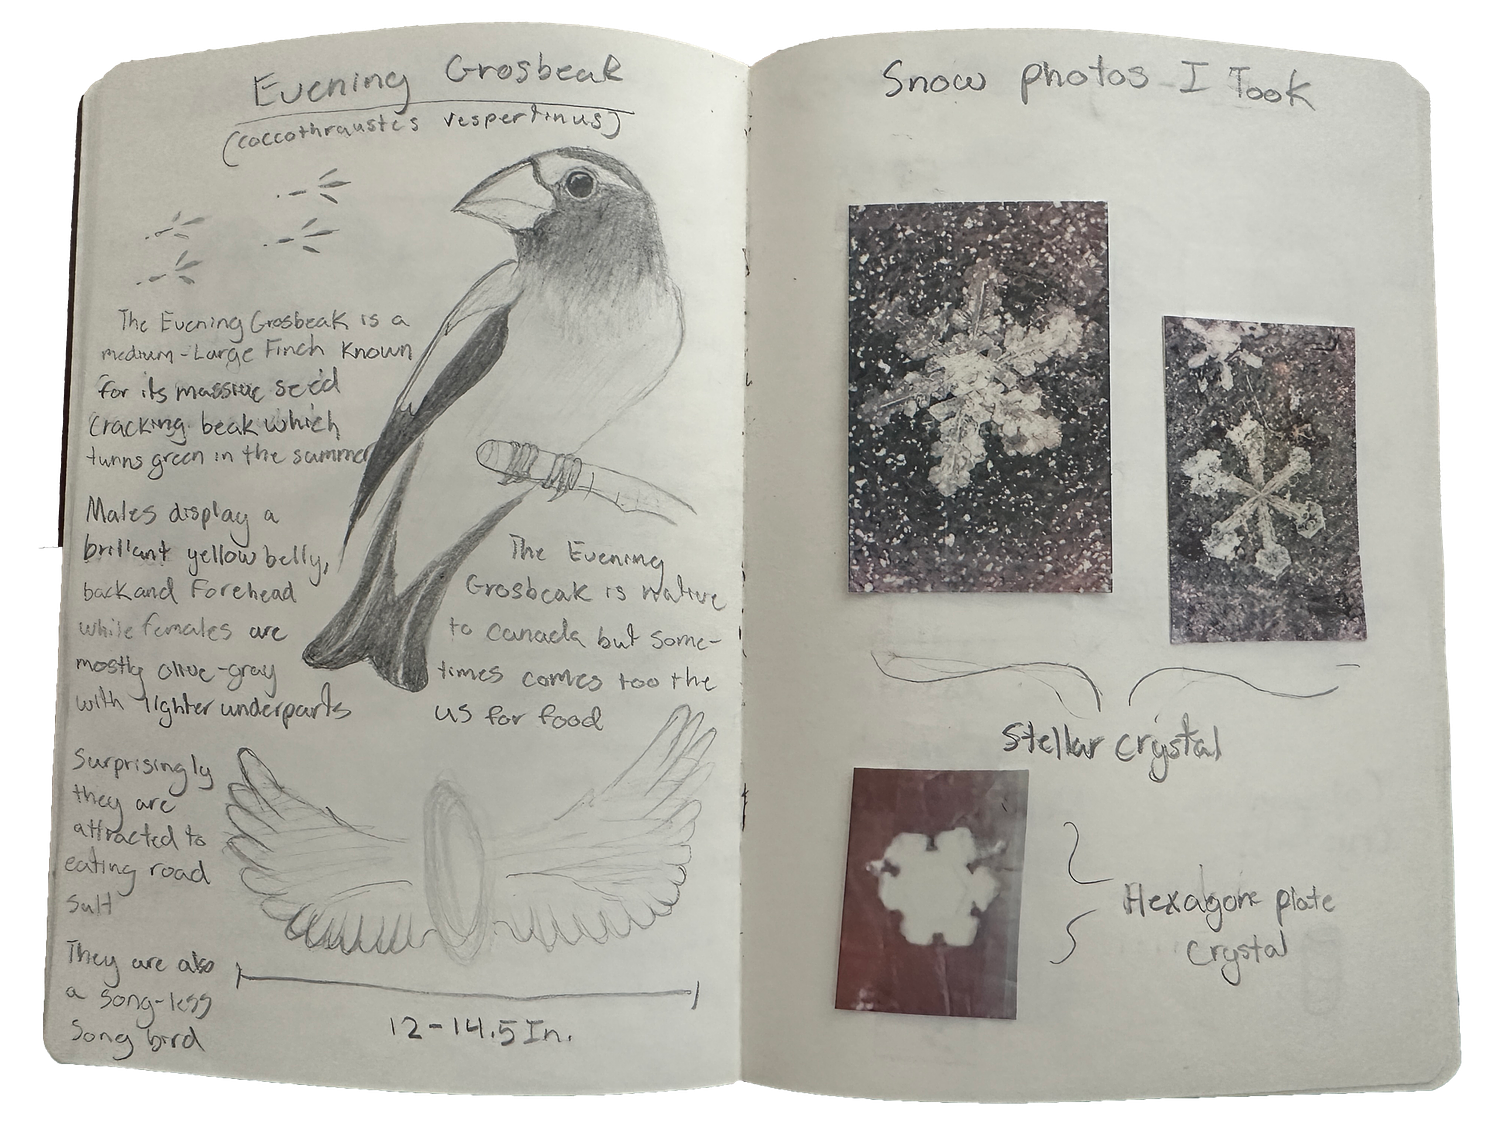 Evening Grosbeak
(coccothraustes vespertinus)
The Evening Grosbeak is a
medium-Large Finch Known
for its massive seed
Cracking beak which
turns green in the summer
Males display a
brillant yellow belly,
back and Forehead
while females are
mostly olive-gray
with lighter underparts
The Evening
Grosbeak is Native
to Canada but some-
times comes too the
US for food
Surprisingly
they are
attracted to
eating road
salt
They are also
a song-less
Song bird
12-14.5 In.
Snow photos I Took
Stellar crystal
Hexagone plate
crystal